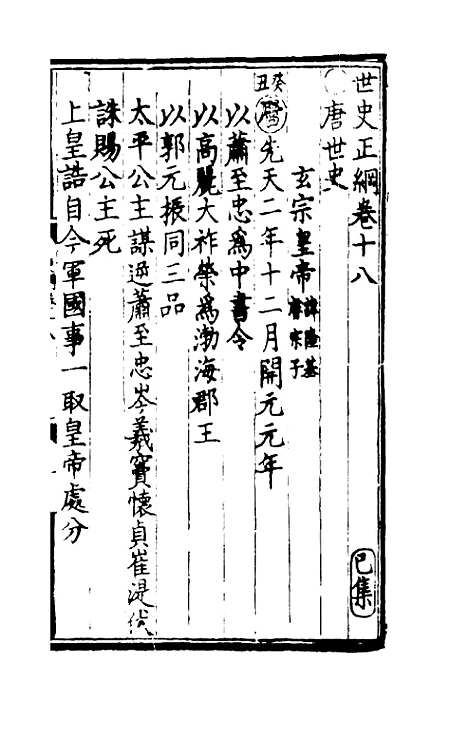 世史正綱卷十八 巳集
唐世史
玄宗皇帝 諱隆基睿宗子
癸丑 唐先天二年十二月開元元年
以蕭至忠為中書令
以高麗大祚榮為渤海郡王
以郭元振同三品
太平公主謀逆蕭至忠岑羲竇懷貞崔湜伏
誅賜公主死
上皇誥自今軍國事一取皇帝處分